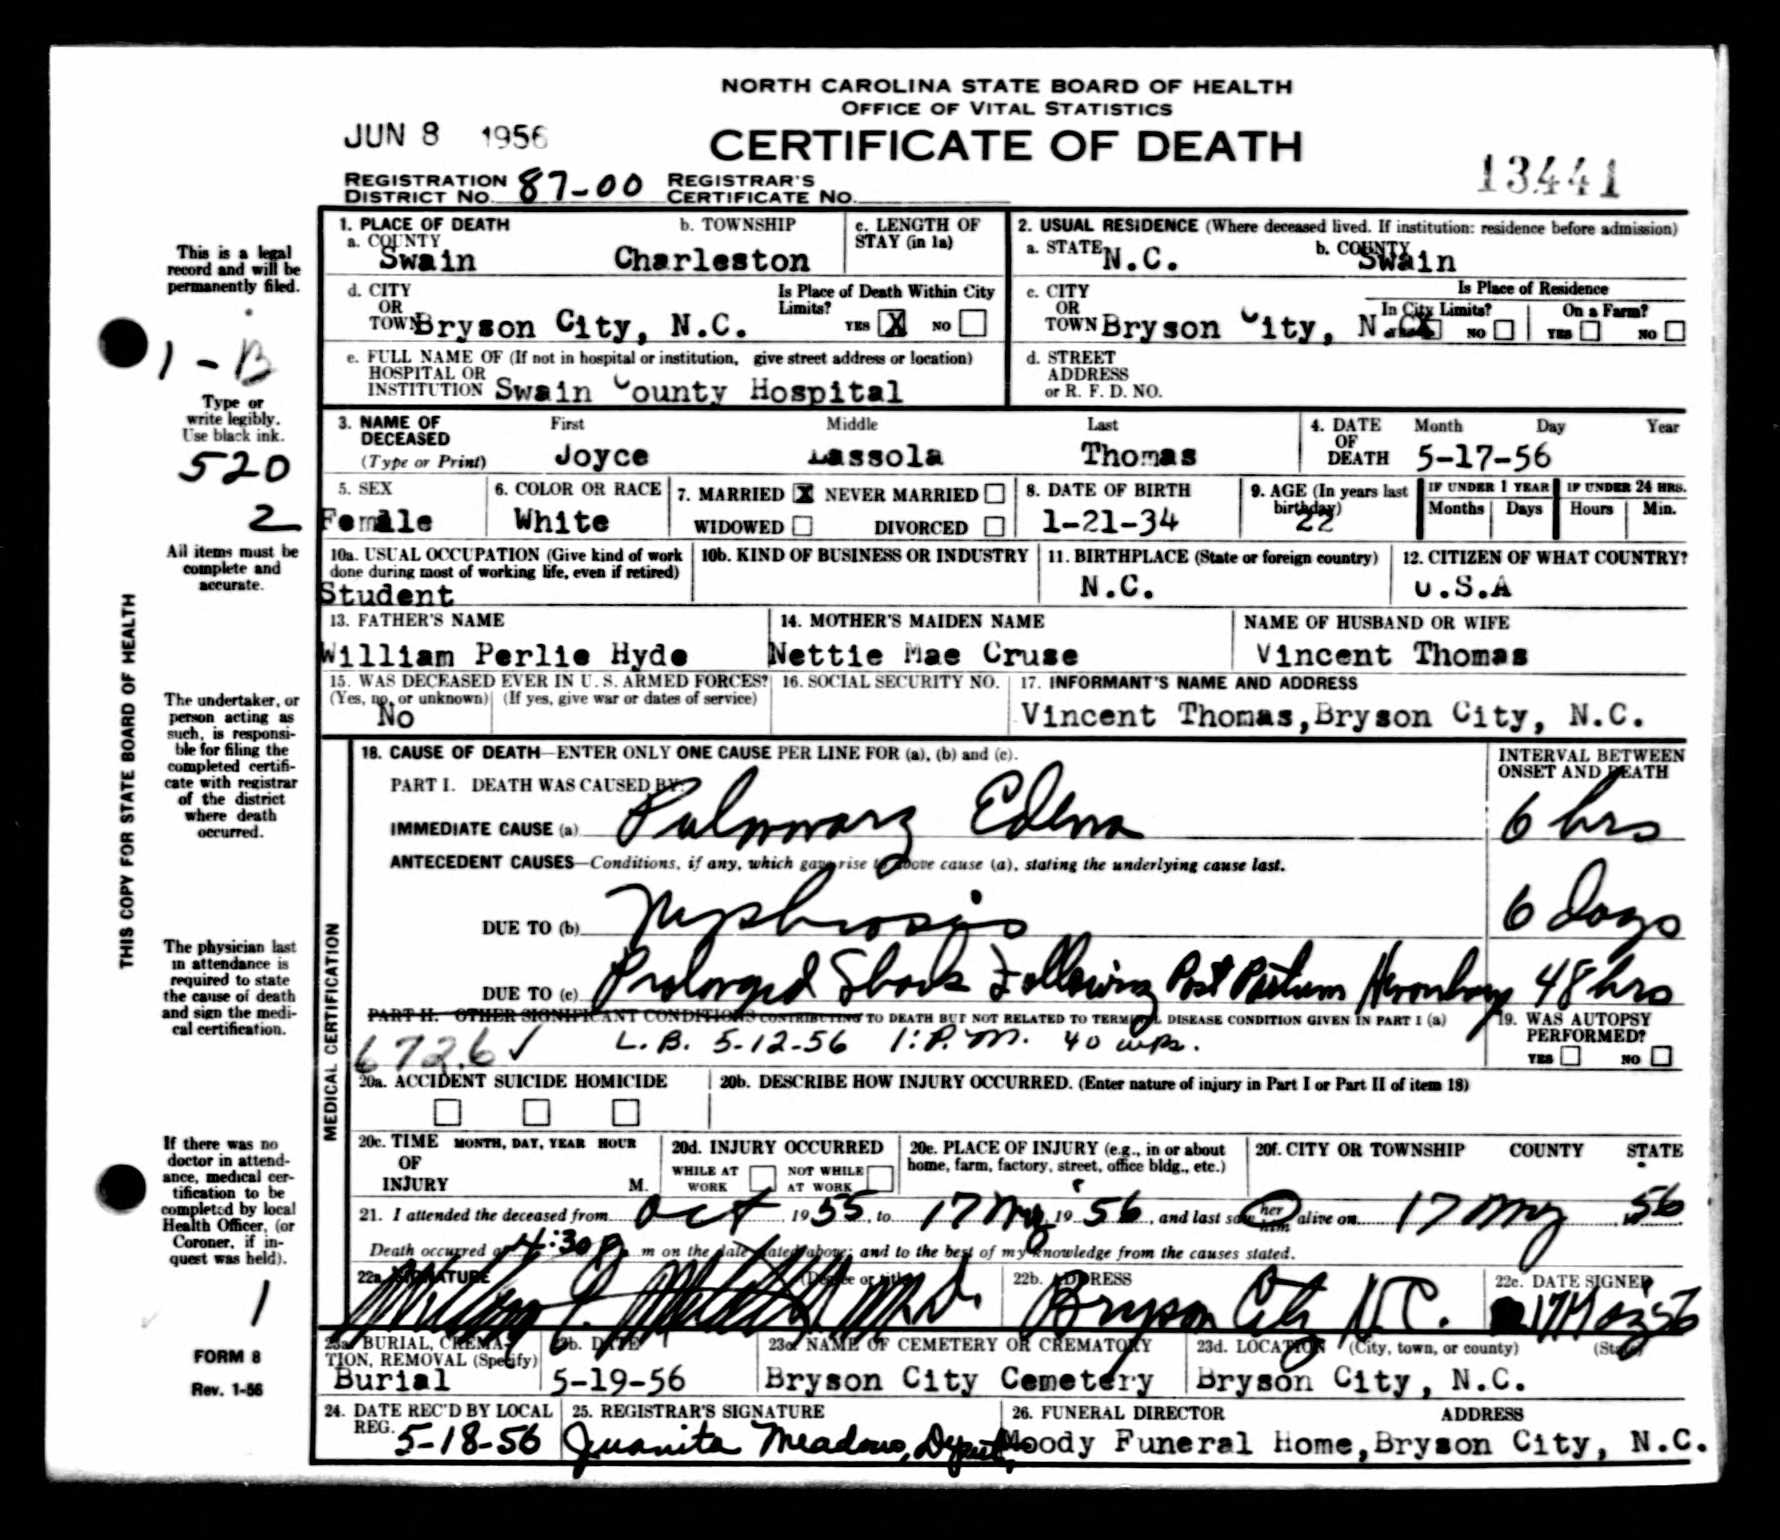 NORTH CAROLINA STATE BOARD OF HEALTH
OFFICE OF VITAL STATISTICS
JUN 8 1956
CERTIFICATE OF DEATH
13441
REGISTRATION DISTRICT NO. 87-00 REGISTRAR'S CERTIFICATE NO.
1. PLACE OF DEATH
a. COUNTY Swain
b. TOWNSHIP Charleston
c. LENGTH OF STAY (in 1a)
2. USUAL RESIDENCE (Where deceased lived. If institution: residence before admission)
a. STATE N.C. b. COUNTY Swain
d. CITY OR TOWN Bryson City, N.C.
Is Place of Death Within City Limits? YES X NO
c. CITY OR TOWN Bryson City, N.C.
Is Place of Residence
In City Limits? NO
On a Farm? YES NO
e. FULL NAME OF (If not in hospital or institution, give street address or location)
HOSPITAL OR
INSTITUTION Swain County Hospital
d. STREET
ADDRESS
or R. F. D. NO.
3. NAME OF DECEASED (Type or Print)
First Joyce Middle Lassola Last Thomas
4. DATE OF DEATH Month Day Year
5-17-56
5. SEX Female
6. COLOR OR RACE White
7. MARRIED X NEVER MARRIED
WIDOWED DIVORCED
8. DATE OF BIRTH 1-21-34
9. AGE (In years last birthday) 22
IF UNDER 1 YEAR Months Days
IF UNDER 24 HRS. Hours Min.
10a. USUAL OCCUPATION (Give kind of work done during most of working life, even if retired)
Student
10b. KIND OF BUSINESS OR INDUSTRY
11. BIRTHPLACE (State or foreign country)
N.C.
12. CITIZEN OF WHAT COUNTRY?
U.S.A
13. FATHER'S NAME
William Perlie Hyde
14. MOTHER'S MAIDEN NAME
Nettie Mae Cruse
NAME OF HUSBAND OR WIFE
Vincent Thomas
15. WAS DECEASED EVER IN U. S. ARMED FORCES?
(Yes, no, or unknown) (If yes, give war or dates of service)
No
16. SOCIAL SECURITY NO.
17. INFORMANT'S NAME AND ADDRESS
Vincent Thomas, Bryson City, N.C.
MEDICAL CERTIFICATION
18. CAUSE OF DEATH—ENTER ONLY ONE CAUSE PER LINE FOR (a), (b) and (c).
INTERVAL BETWEEN ONSET AND DEATH
PART I. DEATH WAS CAUSED BY:
IMMEDIATE CAUSE (a) Pulmonary Edema 6 hrs
ANTECEDENT CAUSES—Conditions, if any, which gave rise to above cause (a), stating the underlying cause last.
DUE TO (b) Nephrosis 6 Days
DUE TO (c) Prolonged Shock Following Post Partum Hemorrhage 48 hrs
PART II. OTHER SIGNIFICANT CONDITIONS CONTRIBUTING TO DEATH BUT NOT RELATED TO TERMINAL DISEASE CONDITION GIVEN IN PART I (a)
672.6 ✓ L. B. 5-12-56 1: P.M. 40 wks.
19. WAS AUTOPSY PERFORMED?
YES NO
20a. ACCIDENT SUICIDE HOMICIDE
20b. DESCRIBE HOW INJURY OCCURRED. (Enter nature of injury in Part I or Part II of item 18)
20c. TIME OF INJURY MONTH, DAY, YEAR HOUR M.
20d. INJURY OCCURRED
WHILE AT WORK NOT WHILE AT WORK
20e. PLACE OF INJURY (e.g., in or about home, farm, factory, street, office bldg., etc.)
20f. CITY OR TOWNSHIP COUNTY STATE
21. I attended the deceased from Oct, 1955, to 17 May, 1956, and last saw her him alive on 17 May, 56
Death occurred at 4:30 P. m on the date stated above; and to the best of my knowledge from the causes stated.
22a. SIGNATURE (Degree or title)
M.D.
22b. ADDRESS
Bryson City N.C.
22c. DATE SIGNED
17 May 56
23a. BURIAL, CREMATION, REMOVAL (Specify)
Burial
23b. DATE
5-19-56
23c. NAME OF CEMETERY OR CREMATORY
Bryson City Cemetery
23d. LOCATION (City, town, or county) (State)
Bryson City, N.C.
24. DATE REC'D BY LOCAL REG. 5-18-56
25. REGISTRAR'S SIGNATURE
Juanita Meadows, Deputy
26. FUNERAL DIRECTOR ADDRESS
Moody Funeral Home, Bryson City, N.C.
This is a legal
record and will be
permanently filed.
1-B
Type or
write legibly.
Use black ink.
520
2
All items must be
complete and
accurate.
THIS COPY FOR STATE BOARD OF HEALTH
The undertaker, or
person acting as
such, is responsi-
ble for filing the
completed certifi-
cate with registrar
of the district
where death
occurred.
The physician last
in attendance is
required to state
the cause of death
and sign the medi-
cal certification.
If there was no
doctor in attend-
ance, medical cer-
tification to be
completed by local
Health Officer, (or
Coroner, if in-
quest was held).
1
FORM 8
Rev. 1-56